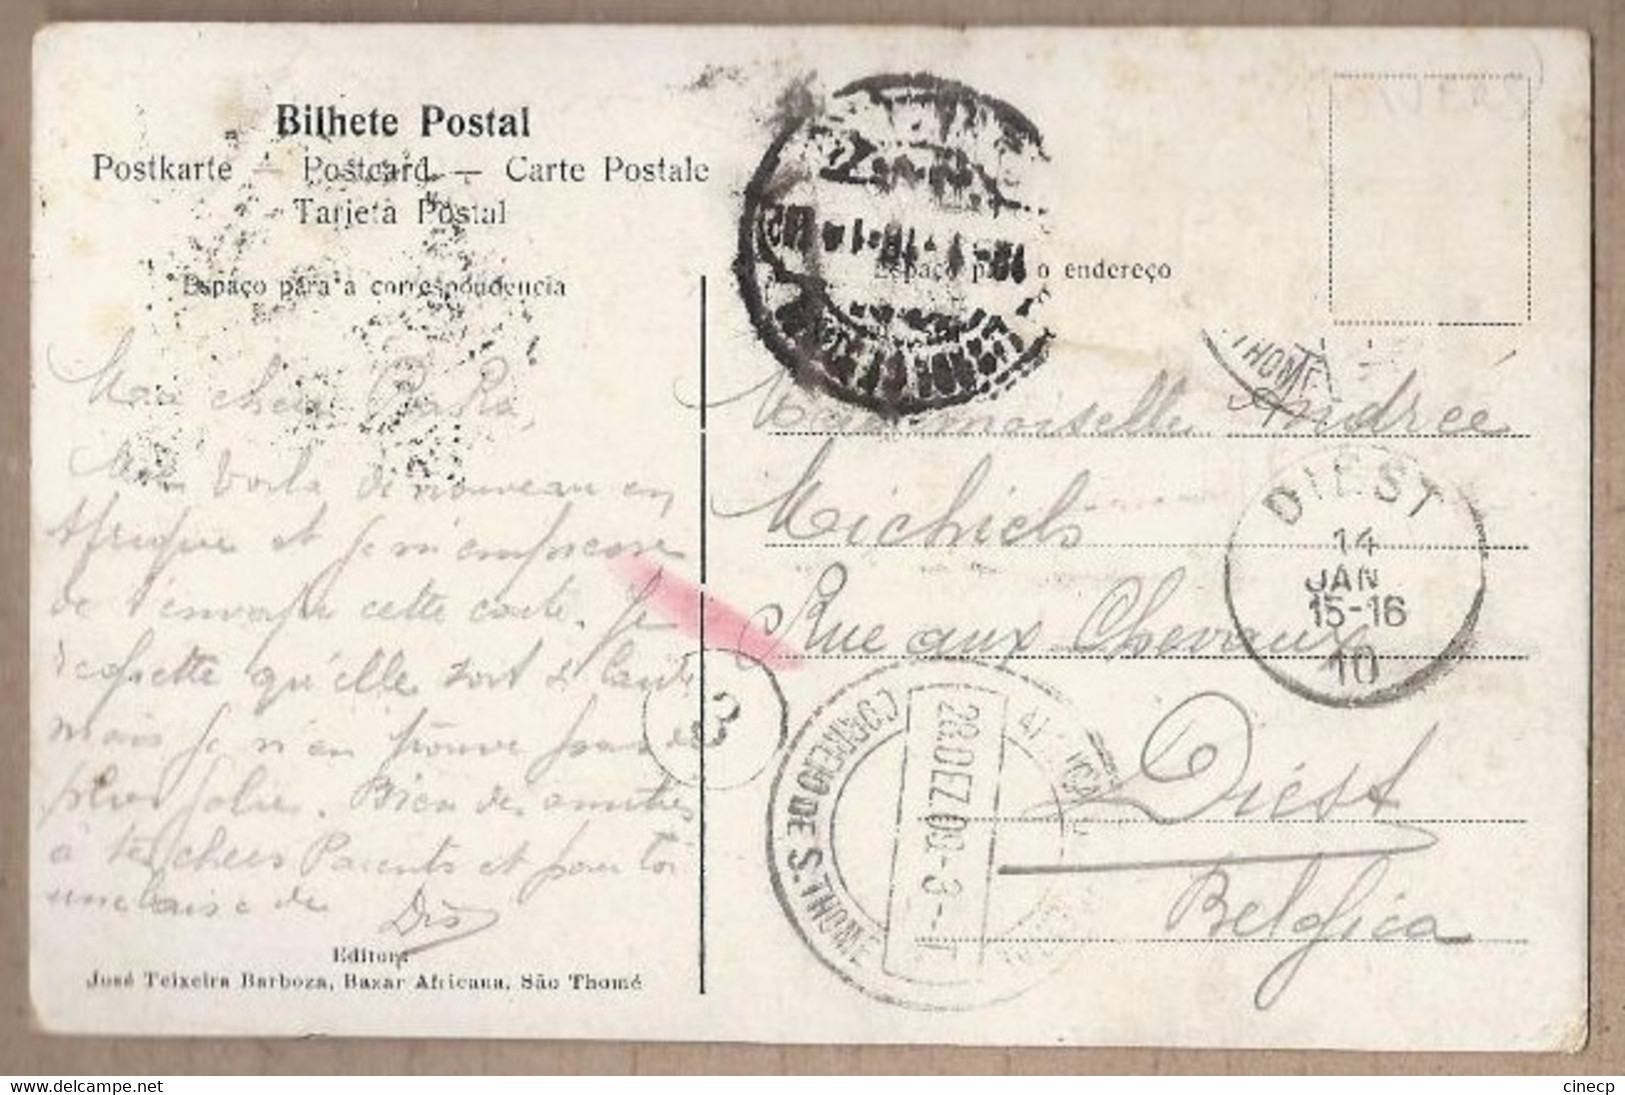 Bilhete Postal
Postkarte — Postcard — Carte Postale
Tarjeta Postal
Espaço para a correspondencia
Espaço para o endereço
THOMÉ
Mon cher
Me voilà de nouveau en
Afrique et je m'empresse
de t'envoyer cette carte. Je
regrette qu'elle soit si
mais je n'en trouve pas de
plus jolies. Bien des amitiés
à tes chers Parents et pour toi
une baise de
Mademoiselle Andrée
Michiels
Rue aux Chevaux
Diest
Belgica
DIEST
14
JAN
15-16
10
3
CORREIO DE S. THOMÉ
28.DEZ.09.-3
Editor:
José Teixeira Barboza, Bazar Africana, São Thomé
delcampe.net
cinecp